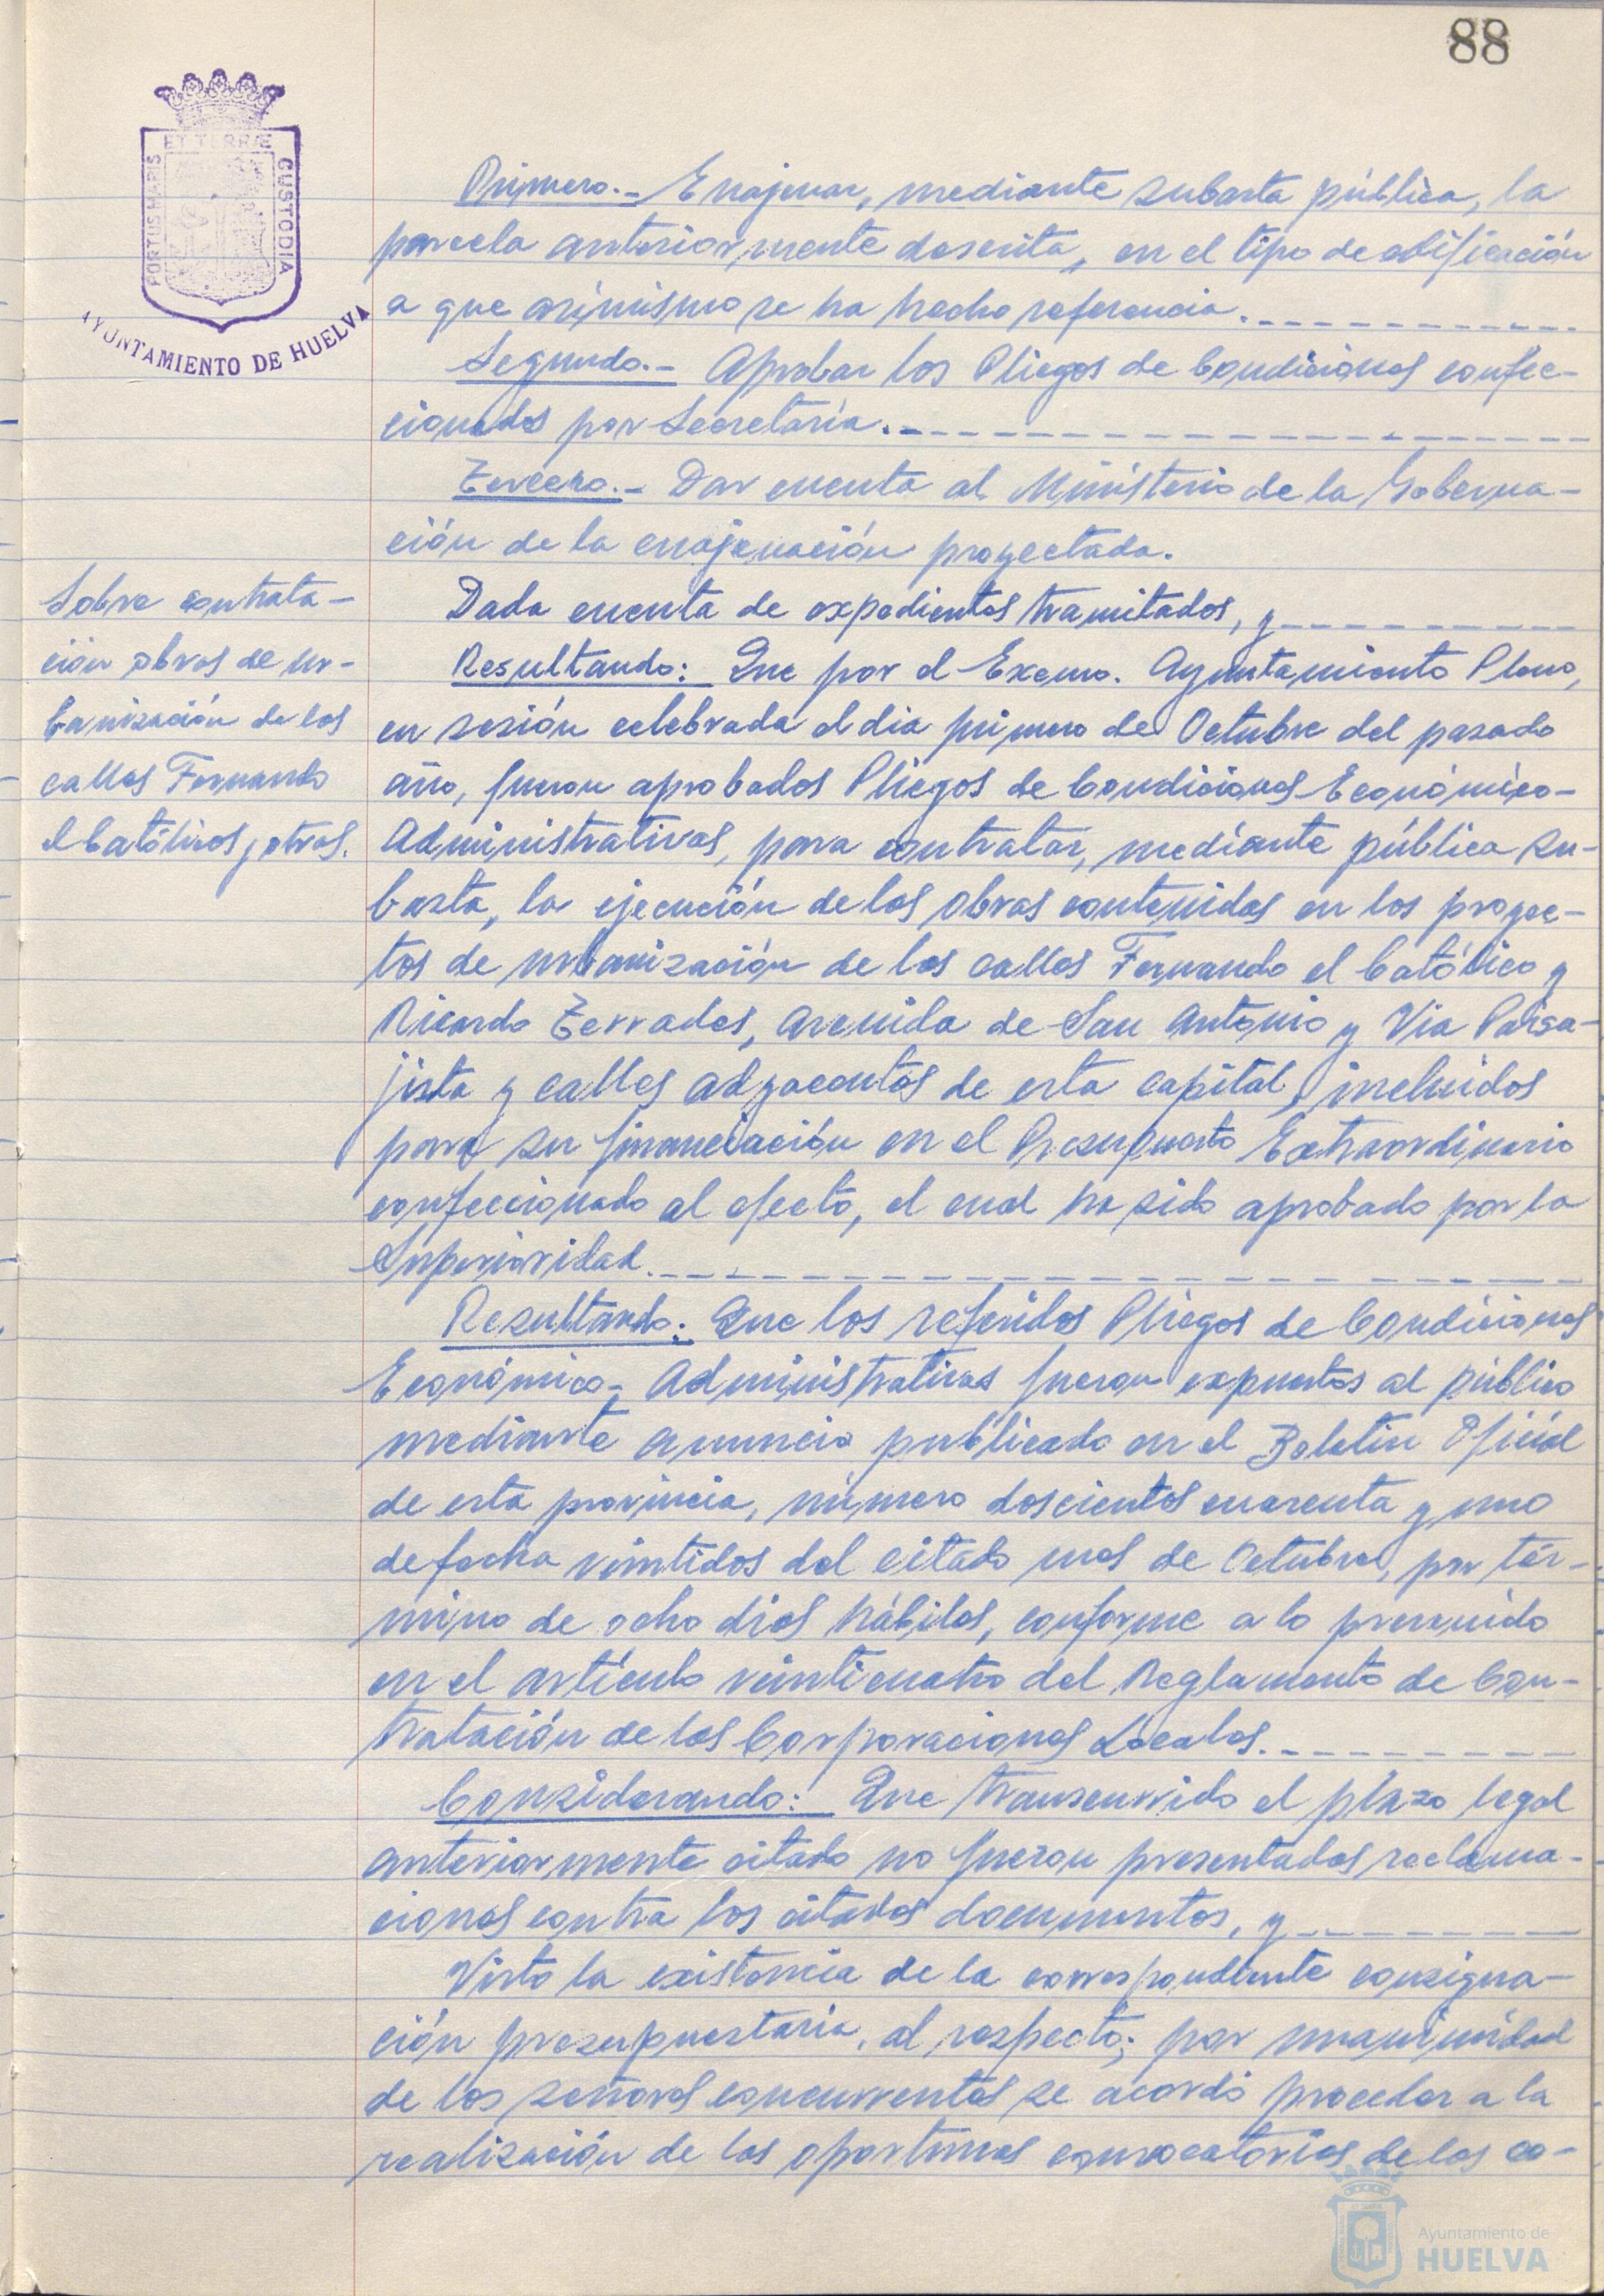 88
ET TERRÆ
PORTUS MARIS
CUSTODIA
AYUNTAMIENTO DE HUELVA
Primero.- Enajenar, mediante subasta pública, la
parcela anteriormente descrita, en el tipo de edificación
a que asimismo se ha hecho referencia.
Segundo.- Aprobar los Pliegos de Condiciones confec-
cionados por Secretaría.
Tercero.- Dar cuenta al Ministerio de la Goberna-
ción de la enajenación proyectada.
Sobre contrata-
ción obras de ur-
banización de las
calles Fernando
el Católicos y otras.
Dada cuenta de expedientes tramitados, y
Resultando: Que por el Excmo. Ayuntamiento Pleno,
en sesión celebrada el dia primero de Octubre del pasado
año, fueron aprobados Pliegos de Condiciones Económico-
Administrativas, para contratar, mediante pública su-
basta, la ejecución de las obras contenidas en los proyec-
tos de urbanización de las calles Fernando el Católico y
Ricardo Terrades, Avenida de San Antonio y Via Paisa-
jista y calles adyacentes de esta capital, incluidos
para su financiación en el Presupuesto Extraordinario
confeccionado al efecto, el cual ha sido aprobado por la
Superioridad.
Resultando: Que los referidos Pliegos de Condiciones
Económico-Administrativas fueron expuestos al público
mediante anuncio publicado en el Boletin Oficial
de esta provincia, número doscientos cuarenta y uno
de fecha veintidos del citado mes de Octubre, por tér-
mino de ocho dias hábiles, conforme a lo prevenido
en el artículo veinticuatro del Reglamento de Con-
tratación de las Corporaciones Locales.
Considerando: Que transcurrido el plazo legal
anteriormente citado no fueron presentadas reclama-
ciones contra los citados documentos, y
Visto la existencia de la correspondiente consigna-
ción presupuestaria, al respecto; por unanimidad
de los señores concurrentes se acordó proceder a la
realización de las oportunas convocatorias de las co-
Ayuntamiento de
HUELVA